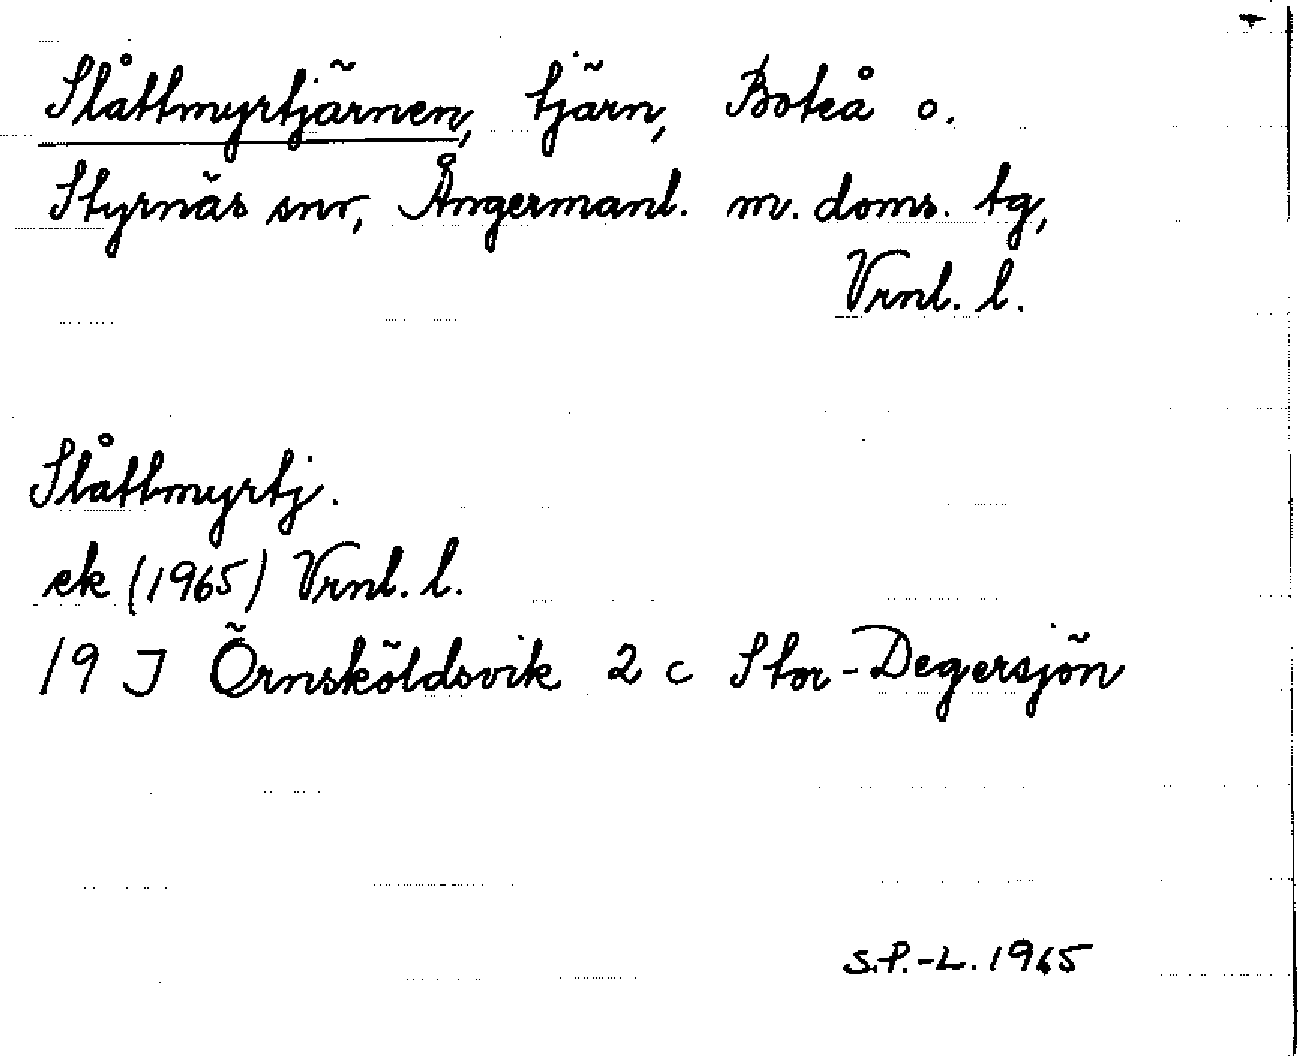 Slåttmyrtjärnen, tjärn, Boteå o.
Styrnäs snr, Ångermanl. m. doms. tg,
Vrnl. l.
Slåttmyrtj.
ek (1965) Vrnl. l.
19 J Örnsköldsvik 2 c Stor-Degersjön
S.P.-L. 1965